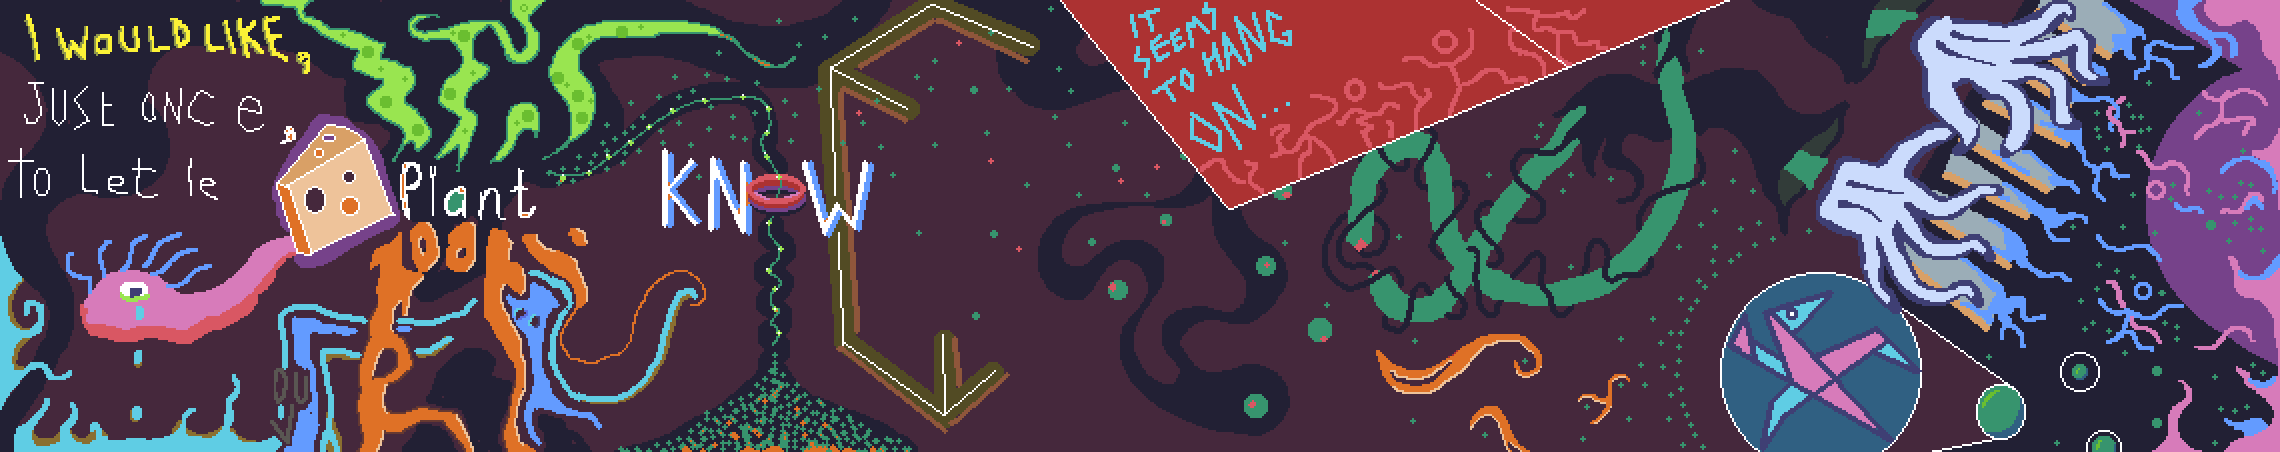 I WOULD LIKE,
JUST ONCE,
to Let le
Plant
KNOW
DU
IT
SEEMS
TO HANG
ON...